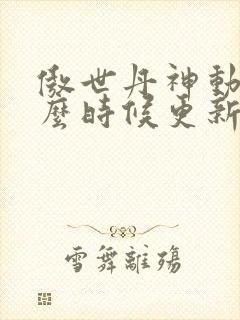 傲世丹神動
麼時候更新
雪舞離殤